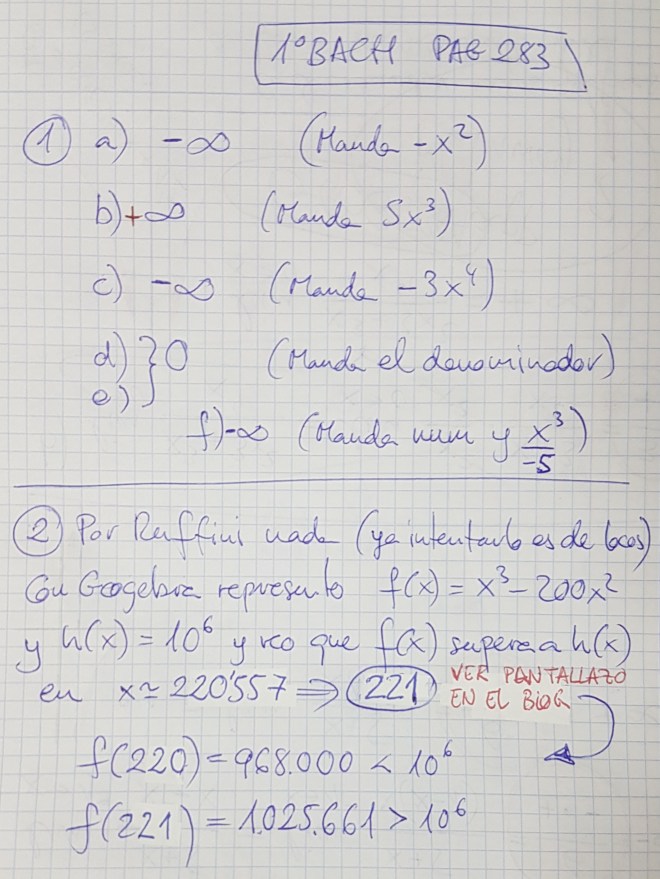 1ºBACH PAG 283
1 a) -∞ (Manda -x²)
b) +∞ (Manda 5x³)
c) -∞ (Manda -3x⁴)
d) } 0 (Manda el denominador)
e)
f) -∞ (Manda num y x³/-5)
2 Por Ruffini nada (ya intentarlo es de locos)
Con Geogebra represento f(x) = x³ - 200x²
y h(x) = 10⁶ y veo que f(x) supera a h(x)
en x ≃ 220'557 ⇒ 221 VER PANTALLAZO
EN EL BLOG
f(220) = 968.000 < 10⁶
f(221) = 1.025.661 > 10⁶